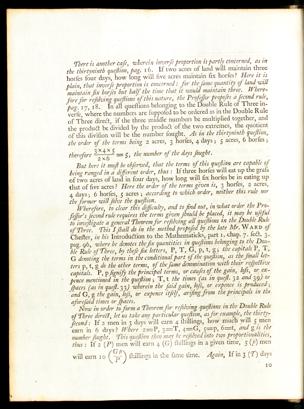 There is another case, wherein inverse proportion is partly concerned, as in
the thirtyninth question, pag. 16. If two acres of land will maintain three
horses four days, how long will five acres maintain six horses? Here it is
plain, that inverse proportion is concerned: for the same quantity of land will
maintain six horses but half the time that it would maintain three. Where-
fore for resolving questions of this nature, the Professor proposes a second rule,
pag. 17, 18. In all questions belonging to the Double Rule of Three in-
verse, where the numbers are supposed to be ordered as in the Double Rule
of Three direct, if the three middle numbers be multiplied together, and
the product be divided by the product of the two extremes, the quotient
of this division will be the number sought. As in the thirtyninth question,
the order of the terms being 2 acres, 3 horses, 4 days; 5 acres, 6 horses;
therefore 3×4×5 / 2×6 = 5, the number of the days sought.
But here it must be observed, that the terms of this question are capable of
being ranged in a different order, thus: If three horses will eat up the grass
of two acres of land in four days, how long will six horses be in eating up
that of five acres? Here the order of the terms given is, 3 horses, 2 acres,
4 days; 6 horses, 5 acres; according to which order, neither this rule nor
the former will solve the question.
Wherefore, to clear this difficulty, and to find out, in what order the Pro-
fessor's second rule requires the terms given should be placed, it may be useful
to investigate a general Theorem for resolving all questions in the Double Rule
of Three. This I shall do in the method proposed by the late Mr. WARD of
Chester, in his Introduction to the Mathematicks, part 1. chap. 7. sect. 3.
pag. 96, where he denotes the six quantities in questions belonging to the Dou-
ble Rule of Three, by these six letters, P, T, G, p, t, g; the capitals P, T,
G denoting the terms in the conditional part of the question, as the small let-
ters p, t, g do the other terms, of the same denomination with their respective
capitals. P, p signify the principal terms, or causes of the gain, loss, or ex-
pence mentioned in the question; T, t the times (as in quest. 32 and 39) or
spaces (as in quest. 33) wherein the said gain, loss, or expence is produced;
and G, g the gain, loss, or expence itself, arising from the principals in the
aforesaid times or spaces.
Now in order to form a Theorem for resolving questions in the Double Rule
of Three direct, let us take any particular question, as for example, the thirty-
second: If 2 men in 3 days will earn 4 shillings, how much will 5 men
earn in 6 days? Where 2=P, 3=T, 4=G, 5=p, 6=t, and g is the
number sought. This question then may be resolved into two proportionalities,
thus: If 2 (P) men will earn 4 (G) shillings in a given time, 5 (p) men
will earn 10 (Gp / P) shillings in the same time. Again, If in 3 (T) days
10